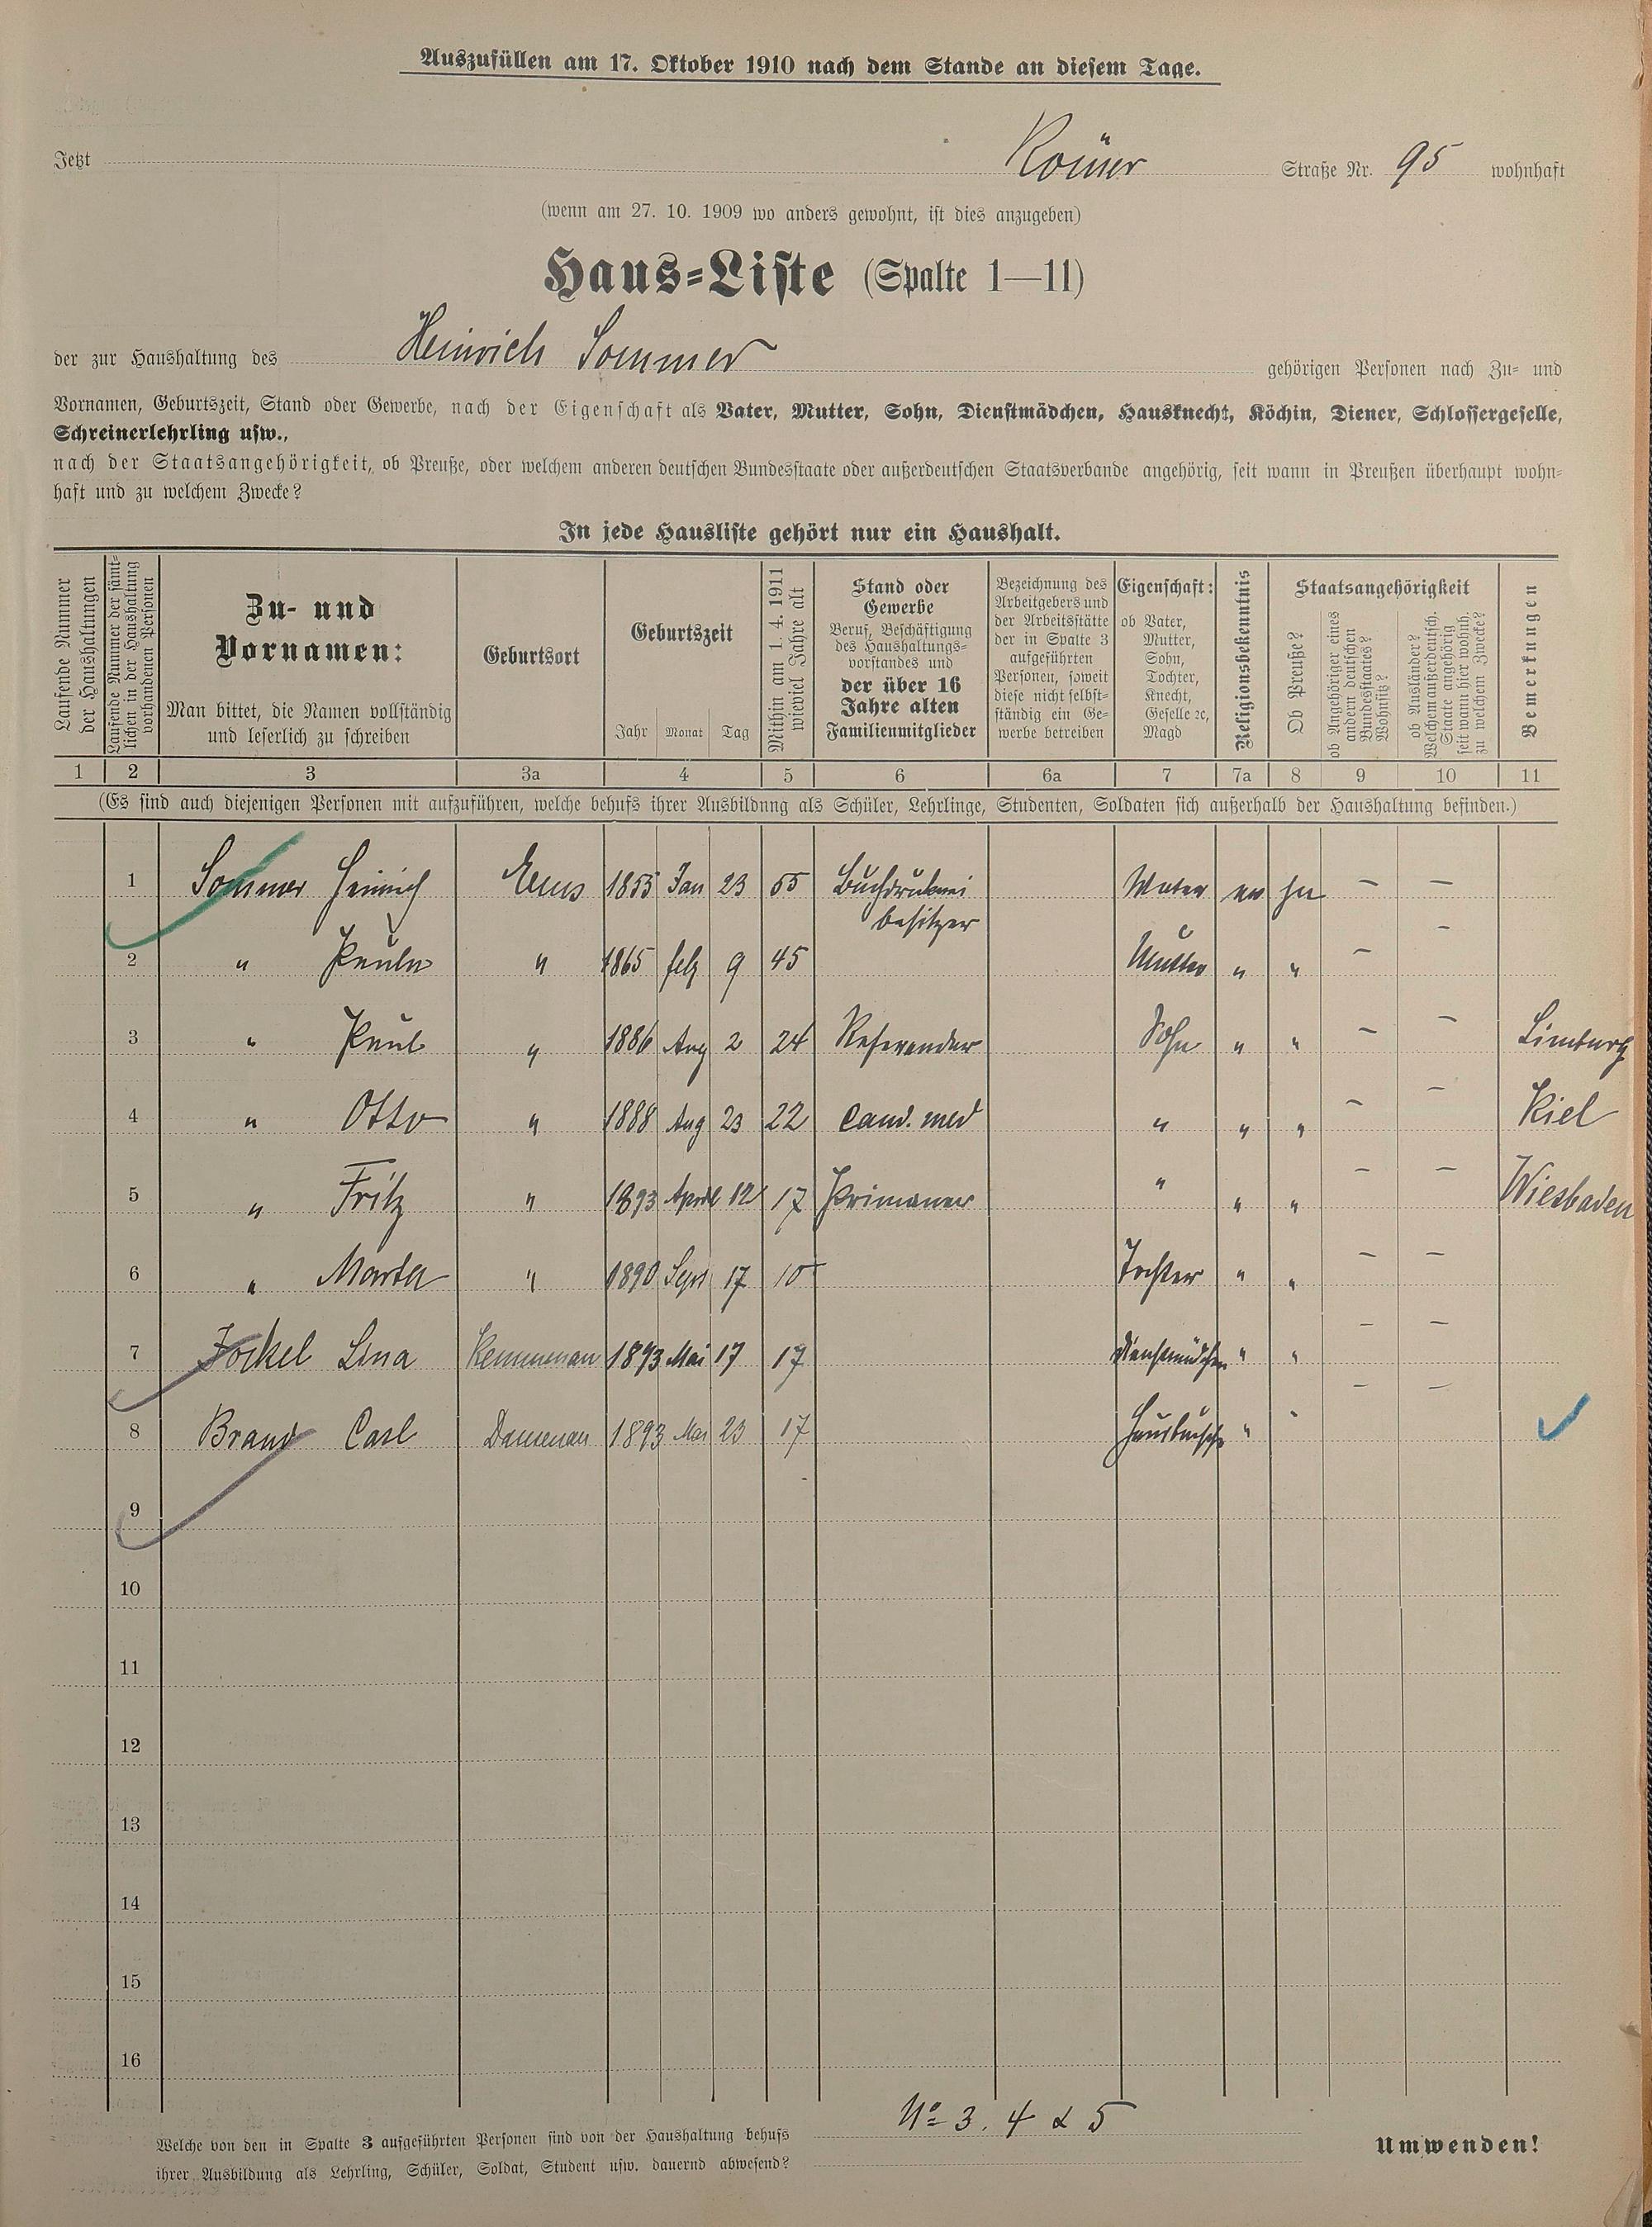 Auszufüllen am 17. Oktober 1910 nach dem Stande an diesem Tage.
Jetzt Römer Straße Nr. 95 wohnhaft
(wenn am 27. 10. 1909 wo anders gewohnt, ist dies anzugeben)
Haus-Liste (Spalte 1—11)
der zur Haushaltung des Heinrich Sommer gehörigen Personen nach Zu- und
Vornamen, Geburtszeit, Stand oder Gewerbe, nach der Eigenschaft als Vater, Mutter, Sohn, Dienstmädchen, Hausknecht, Köchin, Diener, Schlossergeselle,
Schreinerlehrling usw.,
nach der Staatsangehörigkeit, ob Preuße, oder welchem anderen deutschen Bundesstaate oder außerdeutschen Staatsverbande angehörig, seit wann in Preußen überhaupt wohn-
haft und zu welchem Zwecke?
In jede Hausliste gehört nur ein Haushalt.
Laufende Nummer
der Haushaltungen
Laufende Nummer der sämt-
lichen in der Haushaltung
vorhandenen Personen
Zu- und
Vornamen:
Man bittet, die Namen vollständig
und leserlich zu schreiben
Geburtsort
Geburtszeit
Jahr Monat Tag
Mithin am 1. 4. 1911
wieviel Jahre alt
Stand oder
Gewerbe
Beruf, Beschäftigung
des Haushaltungs-
vorstandes und
der über 16
Jahre alten
Familienmitglieder
Bezeichnung des
Arbeitgebers und
der Arbeitsstätte
der in Spalte 3
aufgeführten
Personen, soweit
diese nicht selbst-
ständig ein Ge-
werbe betreiben
Eigenschaft:
ob Vater,
Mutter,
Sohn,
Tochter,
Knecht,
Geselle ꝛc,
Magd
Religionsbekenntnis
Staatsangehörigkeit
Ob Preuße?
ob Angehöriger eines
andern deutschen
Bundesstaates?
Wohnsitz?
ob Ausländer?
Welchem außerdeutsch.
Staate angehörig
seit wann hier wohnh.
zu welchem Zwecke?
Bemerkungen
1 2 3 3a 4 5 6 6a 7 7a 8 9 10 11
(Es sind auch diejenigen Personen mit aufzuführen, welche behufs ihrer Ausbildung als Schüler, Lehrlinge, Studenten, Soldaten sich außerhalb der Haushaltung befinden.)
1 Sommer Heinrich Ems 1855 Jan 23 55 Buchdruckerei Vater ev ja — —
besitzer
2 " Paula " 1865 feb 9 45 Mutter " " — —
3 " Paul " 1886 Aug 2 24 Referendar Sohn " " — — Limburg
4 " Otto " 1888 Aug 23 22 cand. med " " " — — Kiel
5 " Fritz " 1893 April 12 17 Primaner " " " — — Wiesbaden
6 " Marta " 1890 Sept 17 10 Tochter " " — —
7 Jockel Lina Kemmenau 1893 Mai 17 17 Dienstmädchen " " — —
8 Brand Carl 1893 Mai 23 17 Hausbursche " " — —
9
10
11
12
13
14
15
16
Welche von den in Spalte 3 aufgeführten Personen sind von der Haushaltung behufs
ihrer Ausbildung als Lehrling, Schüler, Soldat, Student usw. dauernd abwesend?
No 3. 4 & 5
Umwenden!